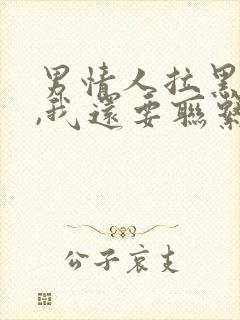 男情人拉黑
,我還要聯繫
公子哀支